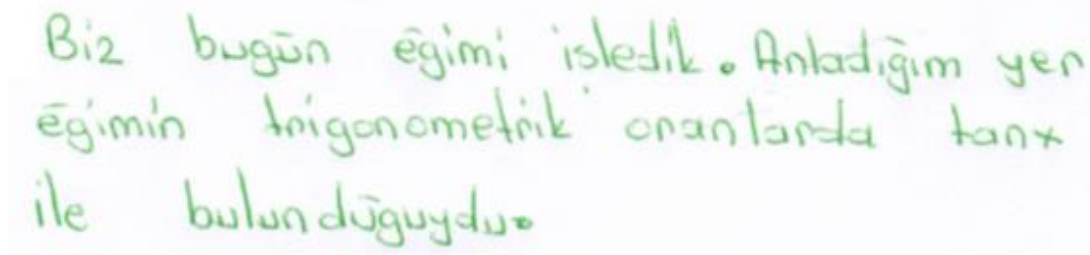 Biz bugün eğimi işledik. Anladığım yer
eğimin trigonometrik oranlarda tanx
ile bulunduğuydu.